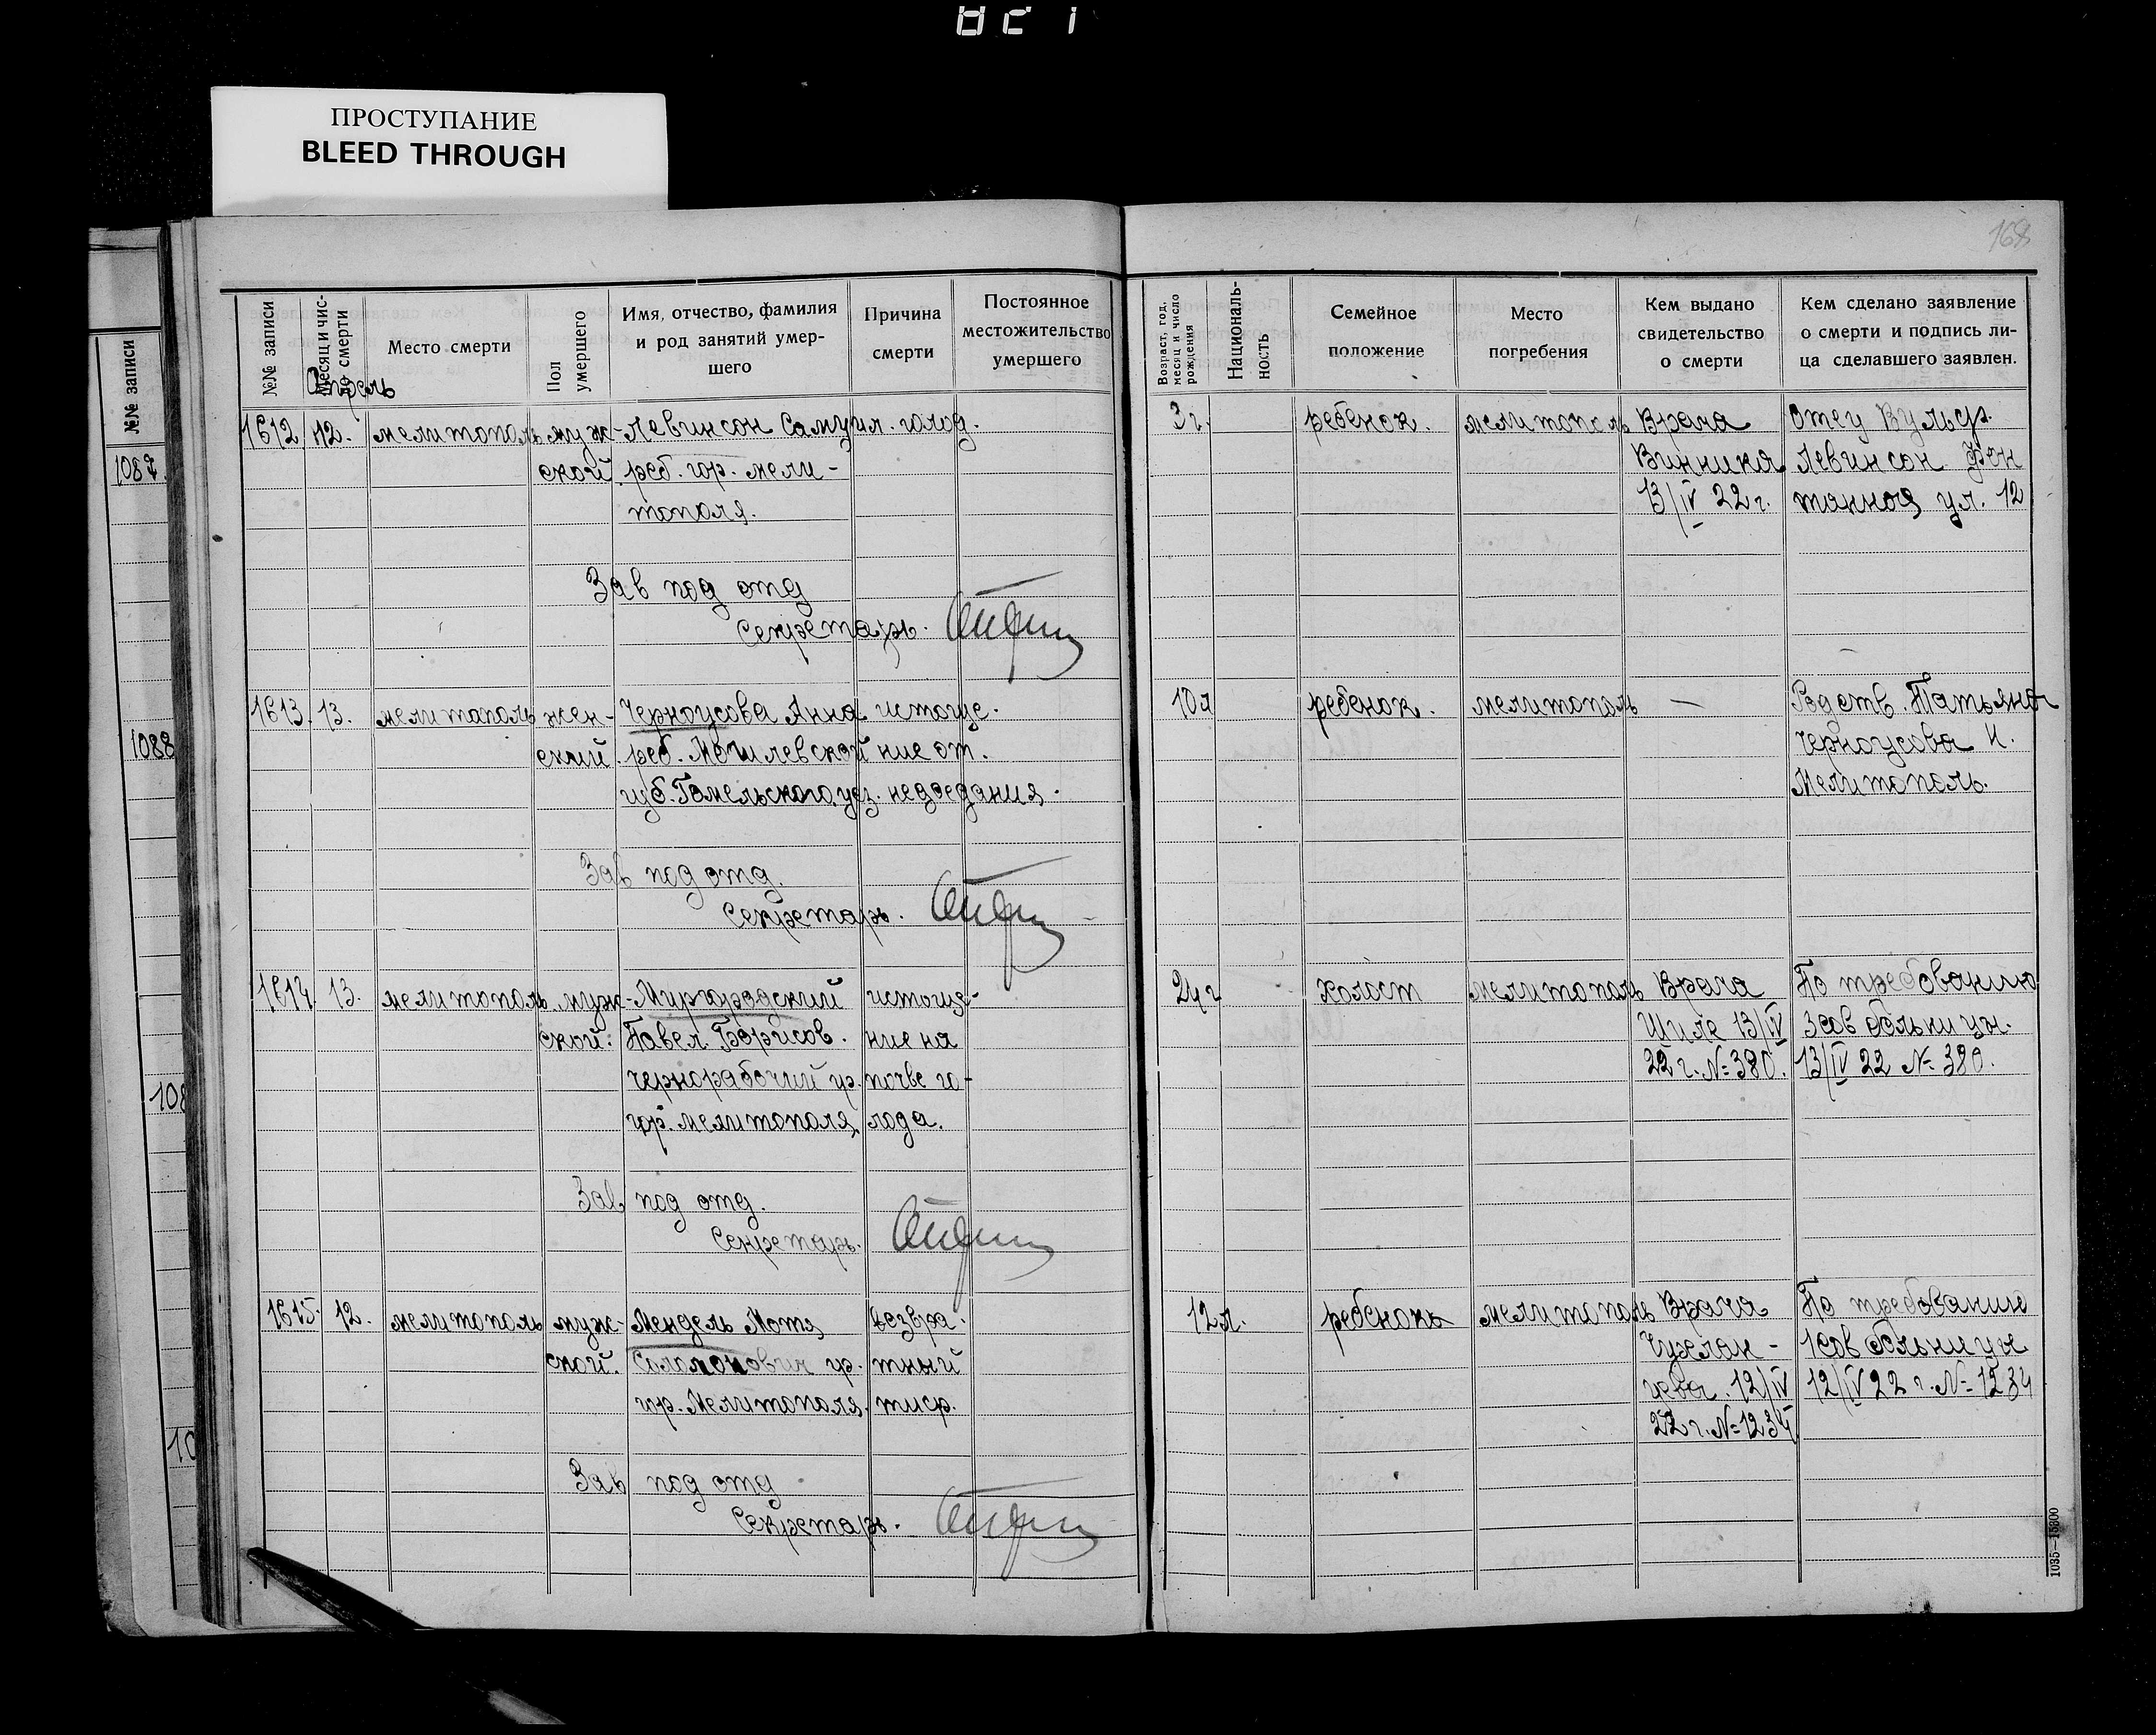 ПРОСТУПАНИЕ
BLEED THROUGH
168
№№ записи
1087.
1088
108
10
№№ записи
Месяц и число смерти
Апрель
Место смерти
Пол умершего
Имя, отчество, фамилия
и род занятий умер-
шего
Причина
смерти
Постоянное
местожительство
умершего
Возраст, год,
месяц и число
рождения
Националь-
ность
Семейное
положение
Место
погребения
Кем выдано
свидетельство
о смерти
Кем сделано заявление
о смерти и подпись ли-
ца сделавшего заявлен.
1612 12. мелитополь муж- Левинсон Самуил. голод. 3 г. ребенок. мелитополь Врача отец Вульф.
ской. реб. гор. мели- Винника Левинсон Фон
тополя. 13/IV 22 г. танная ул. 12
Зав под отд
Секретарь.
1613. 13. мелитополь жен- Черноусова Анна истоще- 10 л ребенок. мелитополь — Родств. Татьяна
ский. реб. Могилевской ние от. Черноусова
губ. Гомельского уез. недоедания. Мелитополь.
Зав под отд.
Секретарь.
1614. 13. мелитополь муж- Миргородский истоще- 24 г холост мелитополь Врача По требованию
ской. Павел Борисов. ние на 13/IV 3 сов больницы.
чернорабочий гр. почве го- 22 г. № 380. 13/IV 22 № 380.
гор. мелитополя лода.
Зав под отд.
Секретарь.
1615. 12. мелитополь муж- Мендель Мотя возвра- 12 л. ребенокъ мелитополь Врача По требованию
ской. Соломонович гр. тный 1 сов больницы
гор. Мелитополя. тиф. 12/IV 12/IV 22 г. № 1234
22 г. № 1234
Зав под отд
Секретарь.
1035—15800